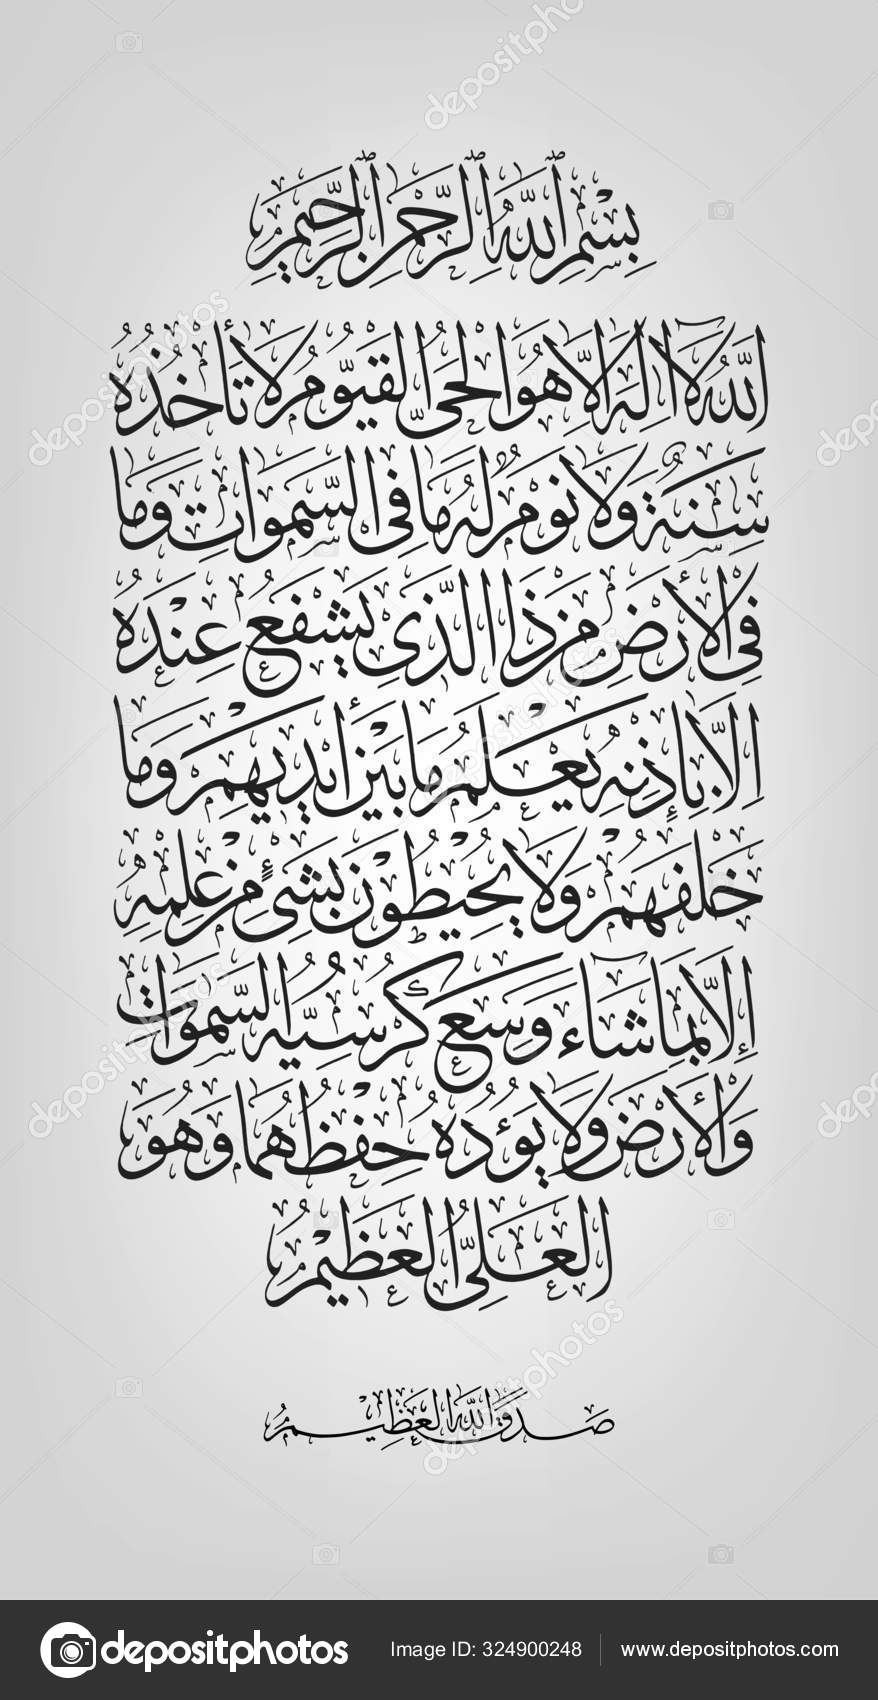 بِسْمِ اللَّهِ الرَّحْمَنِ الرَّحِيمِ
اللَّهُ لَا إِلَهَ إِلَّا هُوَ الْحَيُّ الْقَيُّومُ لَا تَأْخُذُهُ
سِنَةٌ وَلَا نَوْمٌ لَهُ مَا فِي السَّمَوَاتِ وَمَا
فِي الْأَرْضِ مَنْ ذَا الَّذِي يَشْفَعُ عِنْدَهُ
إِلَّا بِإِذْنِهِ يَعْلَمُ مَا بَيْنَ أَيْدِيهِمْ وَمَا
خَلْفَهُمْ وَلَا يُحِيطُونَ بِشَيْءٍ مِنْ عِلْمِهِ
إِلَّا بِمَا شَاءَ وَسِعَ كُرْسِيُّهُ السَّمَوَاتِ
وَالْأَرْضَ وَلَا يَؤُدُهُ حِفْظُهُمَا وَهُوَ
الْعَلِيُّ الْعَظِيمُ
صَدَقَ اللَّهُ الْعَظِيمُ
depositphotos Image ID: 324900248 www.depositphotos.com